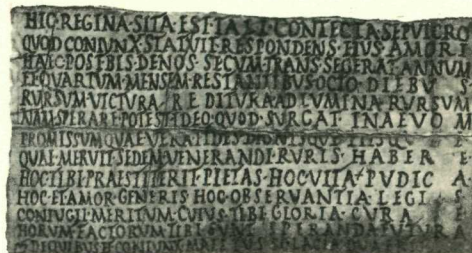 HIC·REGINA·SITA·EST·TALI·CONTECTA·SEPVLCRO
QVOD·CONIVNX·STATVIT·RESPONDENS·EIVS·AMORI
HAEC·POST·BIS·DENOS·SECVM·TRANSSEGERAT·ANNVM
ET·QVARTVM·MENSEM·RESTANTIBVS·OCTO·DIEBVS
RVRSVM·VICTVRA·REDITVRA·AD·LVMINA·RVRSVM
NAM·SPERARE·POTEST·IDEO·QVOD·SVRGAT·IN AEVO M
PROMISSVM·QVAE·VERA·FIDES·DIGNISQVE·PIISQVE
QVAE·MERVIT·SEDEM·VENERANDI·RVRIS·HABERE
HOC·TIBI·PRAESTITERIT·PIETAS·HOC·VITA·PVDICA
HOC·ET·AMOR·GENERIS·HOC·OBSERVANTIA·LEGIS
CONIVGII·MERITVM·CVIVS·TIBI·GLORIA·CVRAE
HORVM·FACTORVM·TIBI·SVNT·SPERANDA·FVTVRA
DE QVIBVS·ET·CONIVNX·MAESTVS